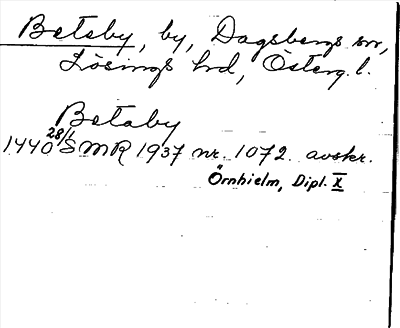 Betsby, by, Dagsbergs sn,
Lösings hd, Österg. l.
Betaby
1440 28/1 SMR 1937 nr. 1072. avskr.
Örnhielm, Dipl. X